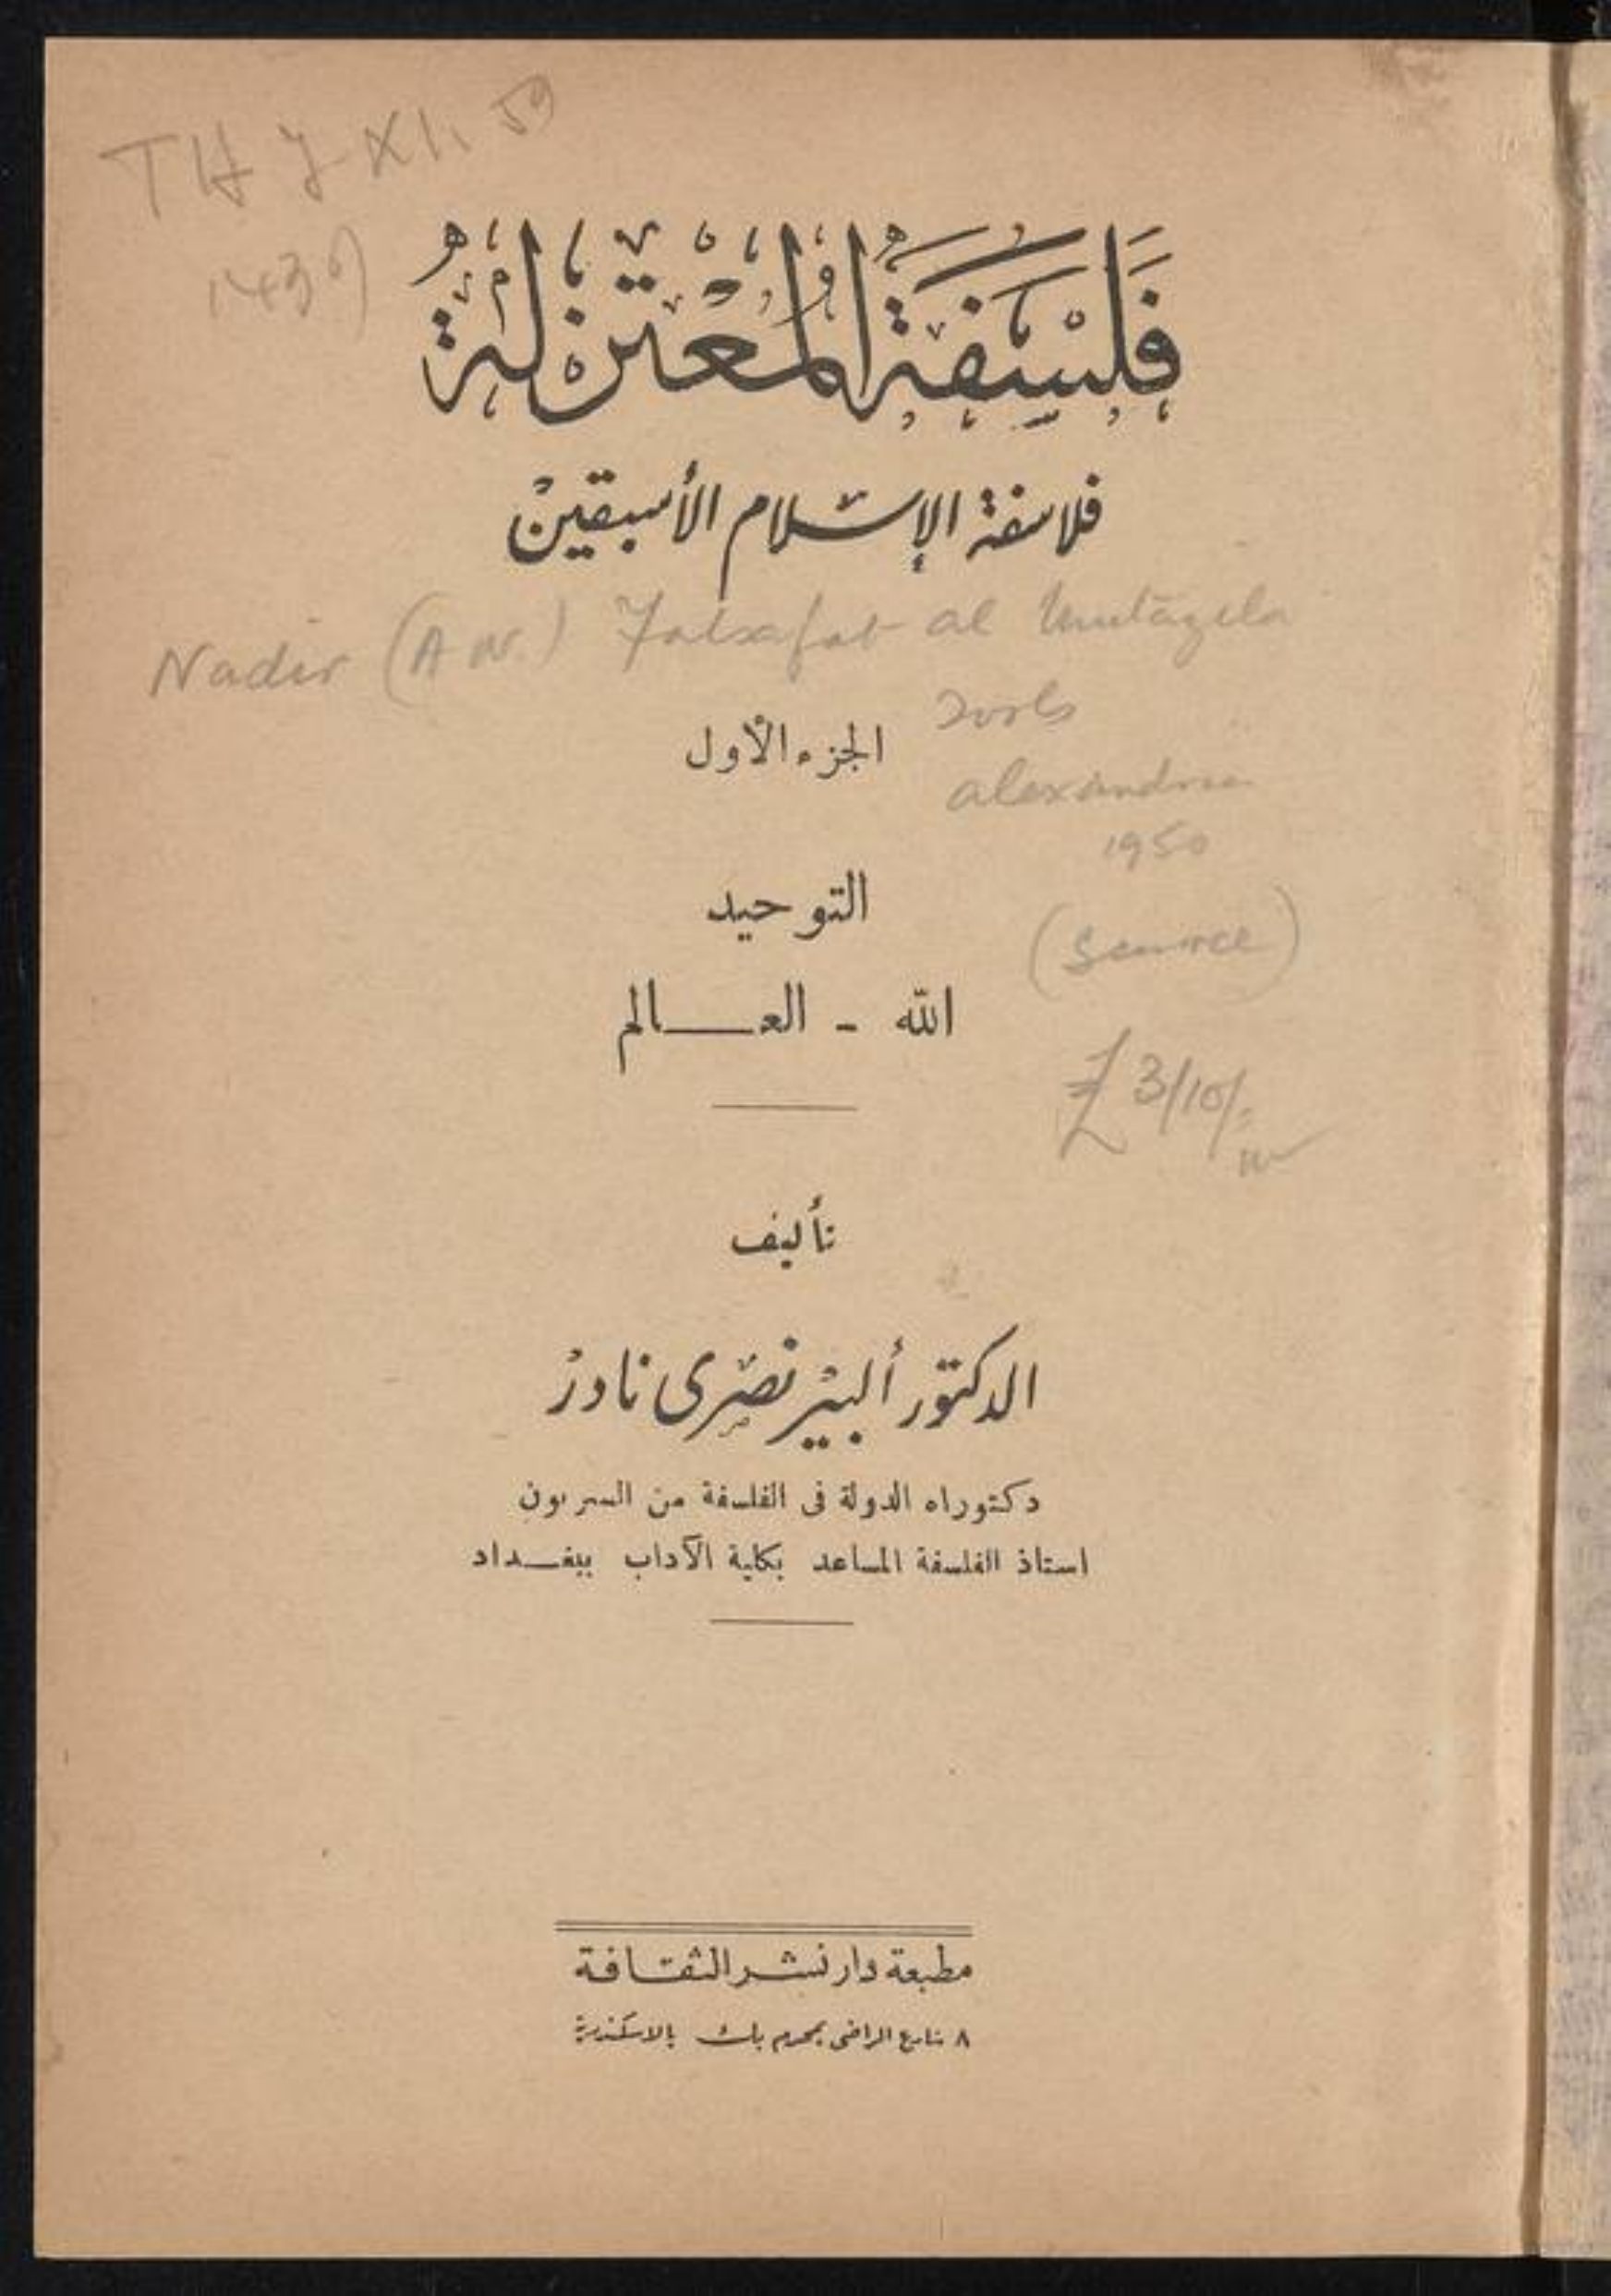 TH 7 XI. 59
143
فَلْسَفَةُ الْمُعْتَزِلَةِ
فلاسفة الإسلام الأسبقين
Nadir (A N.) Falsafat al Mutāzila
2 vols
الجزء الأول
alexandria
1950
التوحيد
(Scarce)
الله - العـــالم
£ 3/10/-
تأليف
الدكتور ألبير نصرى نادر
دكتوراه الدولة فى الفلسفة من السربون
استاذ الفلسفة المساعد بكلية الآداب ببغـــداد
مطبعة دار نشر الثقافة
٨ شارع الراضى بمحرم بك بالاسكندرية